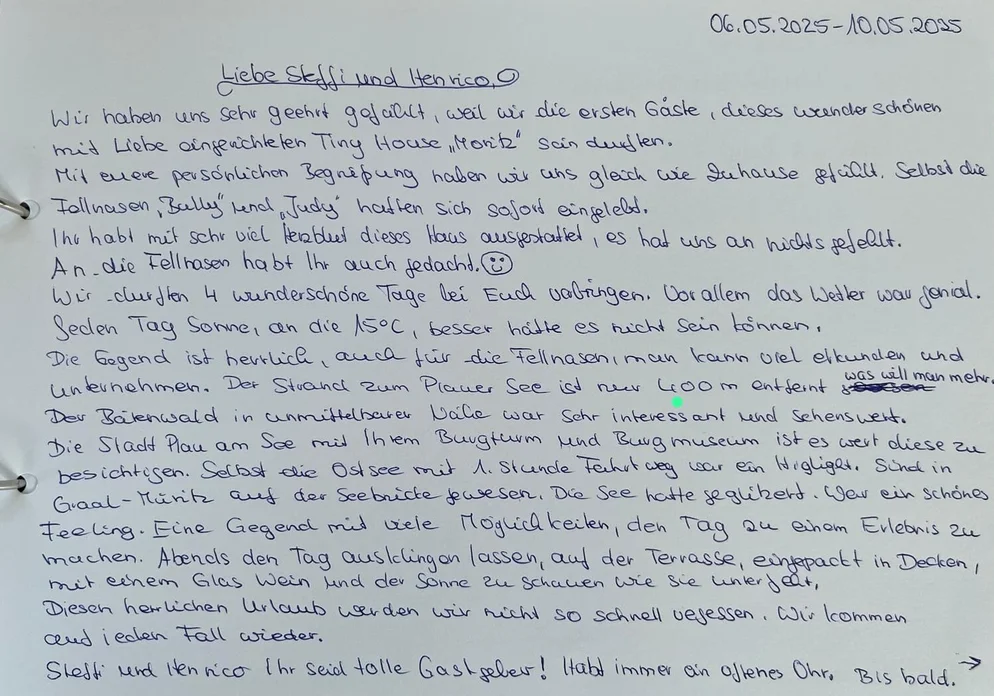 06.05.2025-10.05.2025
Liebe Steffi und Henrico,
Wir haben uns sehr geehrt gefühlt, weil wir die ersten Gäste, dieses wunderschönen
mit Liebe eingerichteten Tiny House „Moritz“ sein durften.
Mit euere persönlichen Begrüßung haben wir uns gleich wie Zuhause gefühlt. Selbst die
Fellnasen „Bully“ und „Judy“ hatten sich sofort eingelebt.
Ihr habt mit sehr viel Herzblut dieses Haus ausgestattet, es hat uns an nichts gefehlt.
An die Fellnasen habt Ihr auch gedacht. ☺
Wir durften 4 wunderschöne Tage bei Euch verbringen. Vor allem das Wetter war genial.
Jeden Tag Sonne, an die 15°C, besser hätte es nicht sein können.
Die Gegend ist herrlich, auch für die Fellnasen, man kann viel erkunden und
unternehmen. Der Strand zum Plauer See ist nur 400m entfernt was will man mehr.
Der Bärenwald in unmittelbarer Nähe war sehr interessant und sehenswert.
Die Stadt Plau am See mit Ihrem Burgturm und Burgmuseum ist es wert diese zu
besichtigen. Selbst die Ostsee mit 1. Stunde Fahrtweg war ein Higlight. Sind in
Graal-Müritz auf der Seebrücke gewesen. Die See hatte geglitzert. War ein schönes
Feeling. Eine Gegend mit viele Möglichkeiten, den Tag zu einem Erlebnis zu
machen. Abends den Tag ausklingen lassen, auf der Terrasse, eingepackt in Decken,
mit einem Glas Wein und der Sonne zu schauen wie sie untergeht.
Diesen herrlichen Urlaub werden wir nicht so schnell vegessen. Wir kommen
auf jeden Fall wieder.
Steffi und Henrico Ihr seid tolle Gastgeber! Habt immer ein offenes Ohr. Bis bald. →